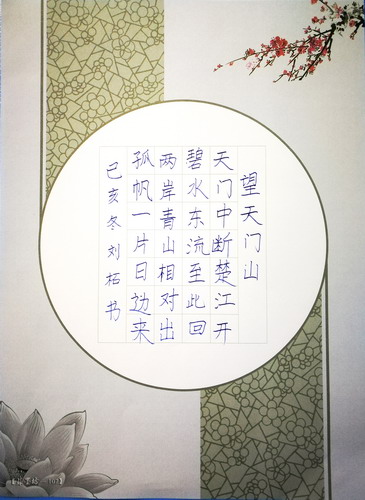 望天门山
天门中断楚江开
碧水东流至此回
两岸青山相对出
孤帆一片日边来
己亥冬刘柘书